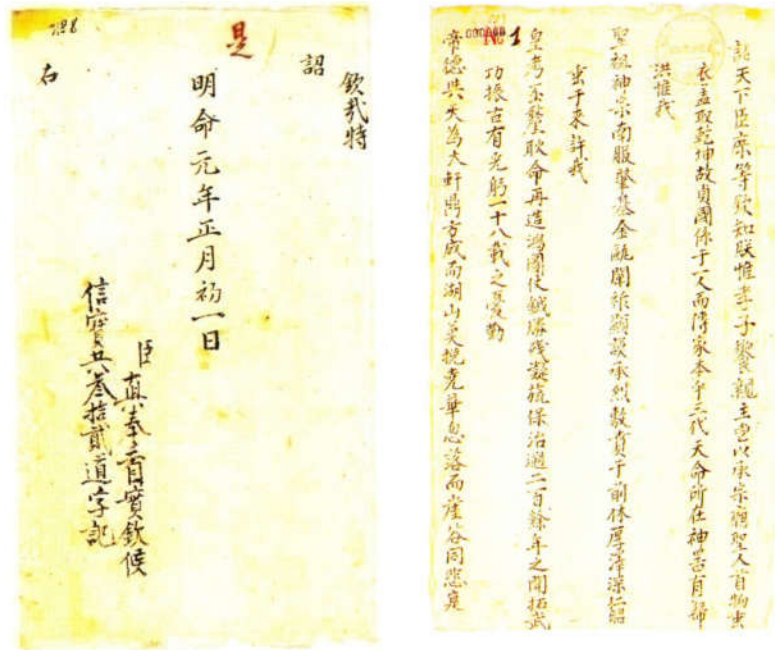 No 1
詔天下臣庶等欽知朕惟孝子饗親主鬯以承宗祧聖人首物垂
衣蓋取乾坤故貞國係于一人而傳家本乎三代天命所在神器有歸
洪惟我
聖祖神宗南服肇基金甌闡祚顯謨承烈敷賁于前休厚澤深仁詔
垂于來許我
皇考丕釐耿命再造鴻圖使越保治邇二百餘年之開拓武
功振古有光躬一十八載之憂勤
帝德與天為大軒鼎方成而湖山莫挽堯華忽落而崖谷同悲寔
是
欽哉特
詔
明命元年正月初一日
臣真奉旨實欽候
信寶共叁拾貳道字記
右